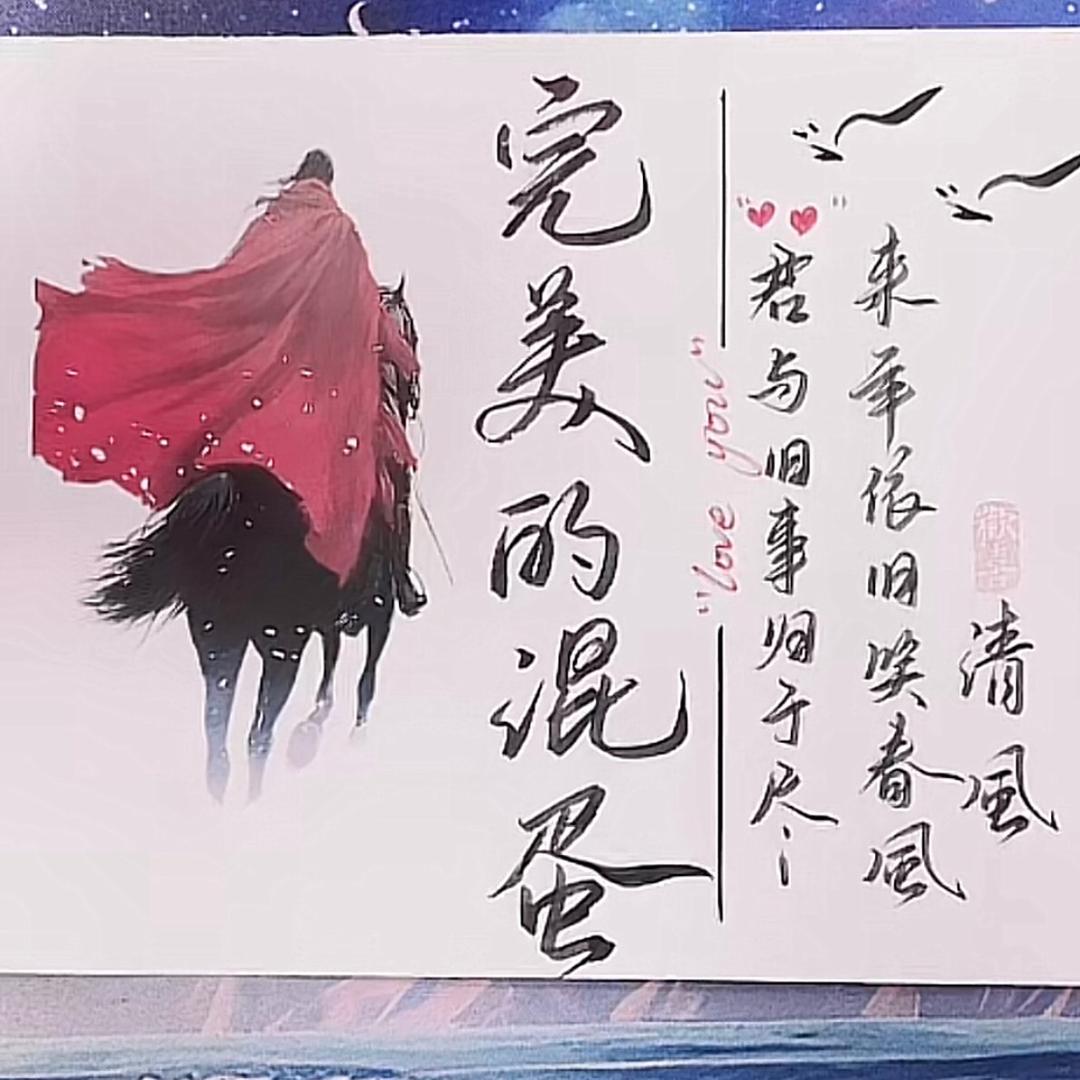 完美的混蛋
"love you"
君与旧事归于尽
来年依旧笑春風
清風